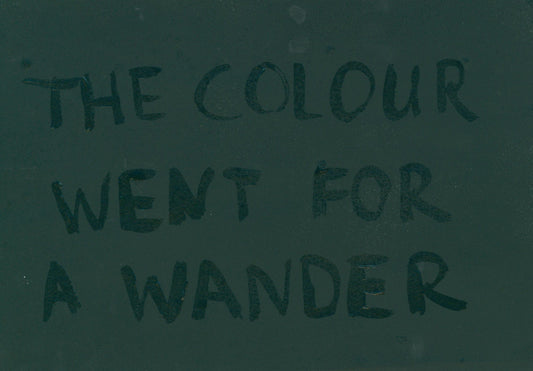 THE COLOUR
WENT FOR
A WANDER